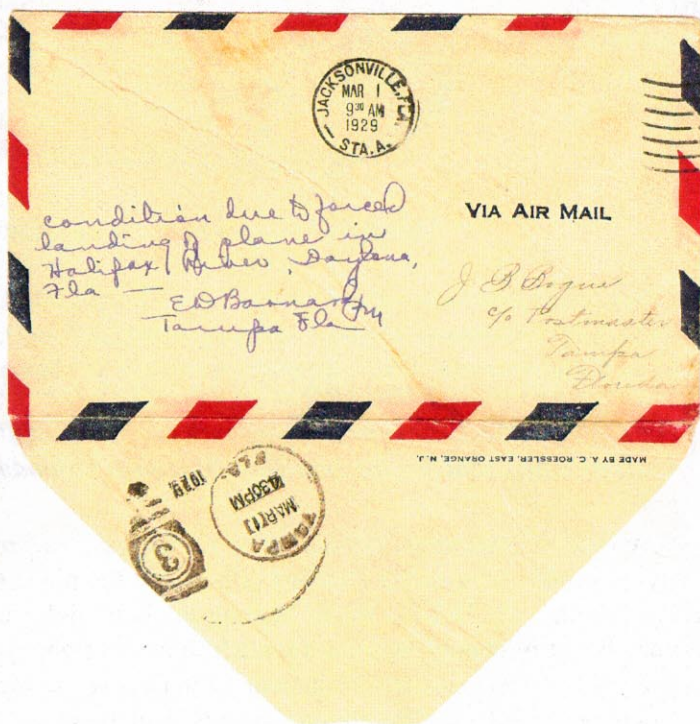 JACKSONVILLE, FLA.
MAR 1
9 30 AM
1929
STA. A.
VIA AIR MAIL
condition due to forced
landing of plane in
Halifax River, Daytona,
Fla —
E D Barnard PM
Tampa Fla
J B Bogue
c/o Postmaster
Tampa
Florida
MADE BY A. C. ROESSLER, EAST ORANGE, N. J.
TAMPA
MAR 1
430 PM
1929
FLA.
3